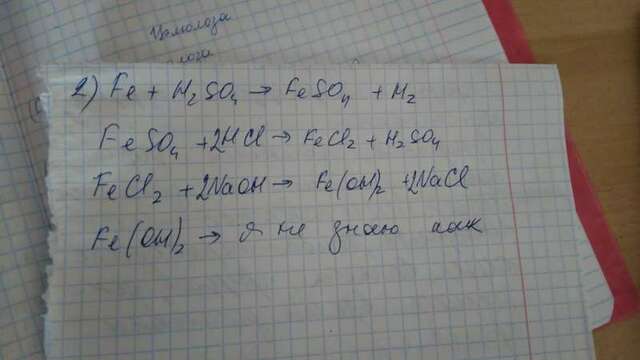 Целюлоза
лоза
2) Fe + H₂SO₄ → FeSO₄ + H₂
FeSO₄ + 2HCl → FeCl₂ + H₂SO₄
FeCl₂ + 2NaOH → Fe(OH)₂ + 2NaCl
Fe(OH)₂ → я не знаю как